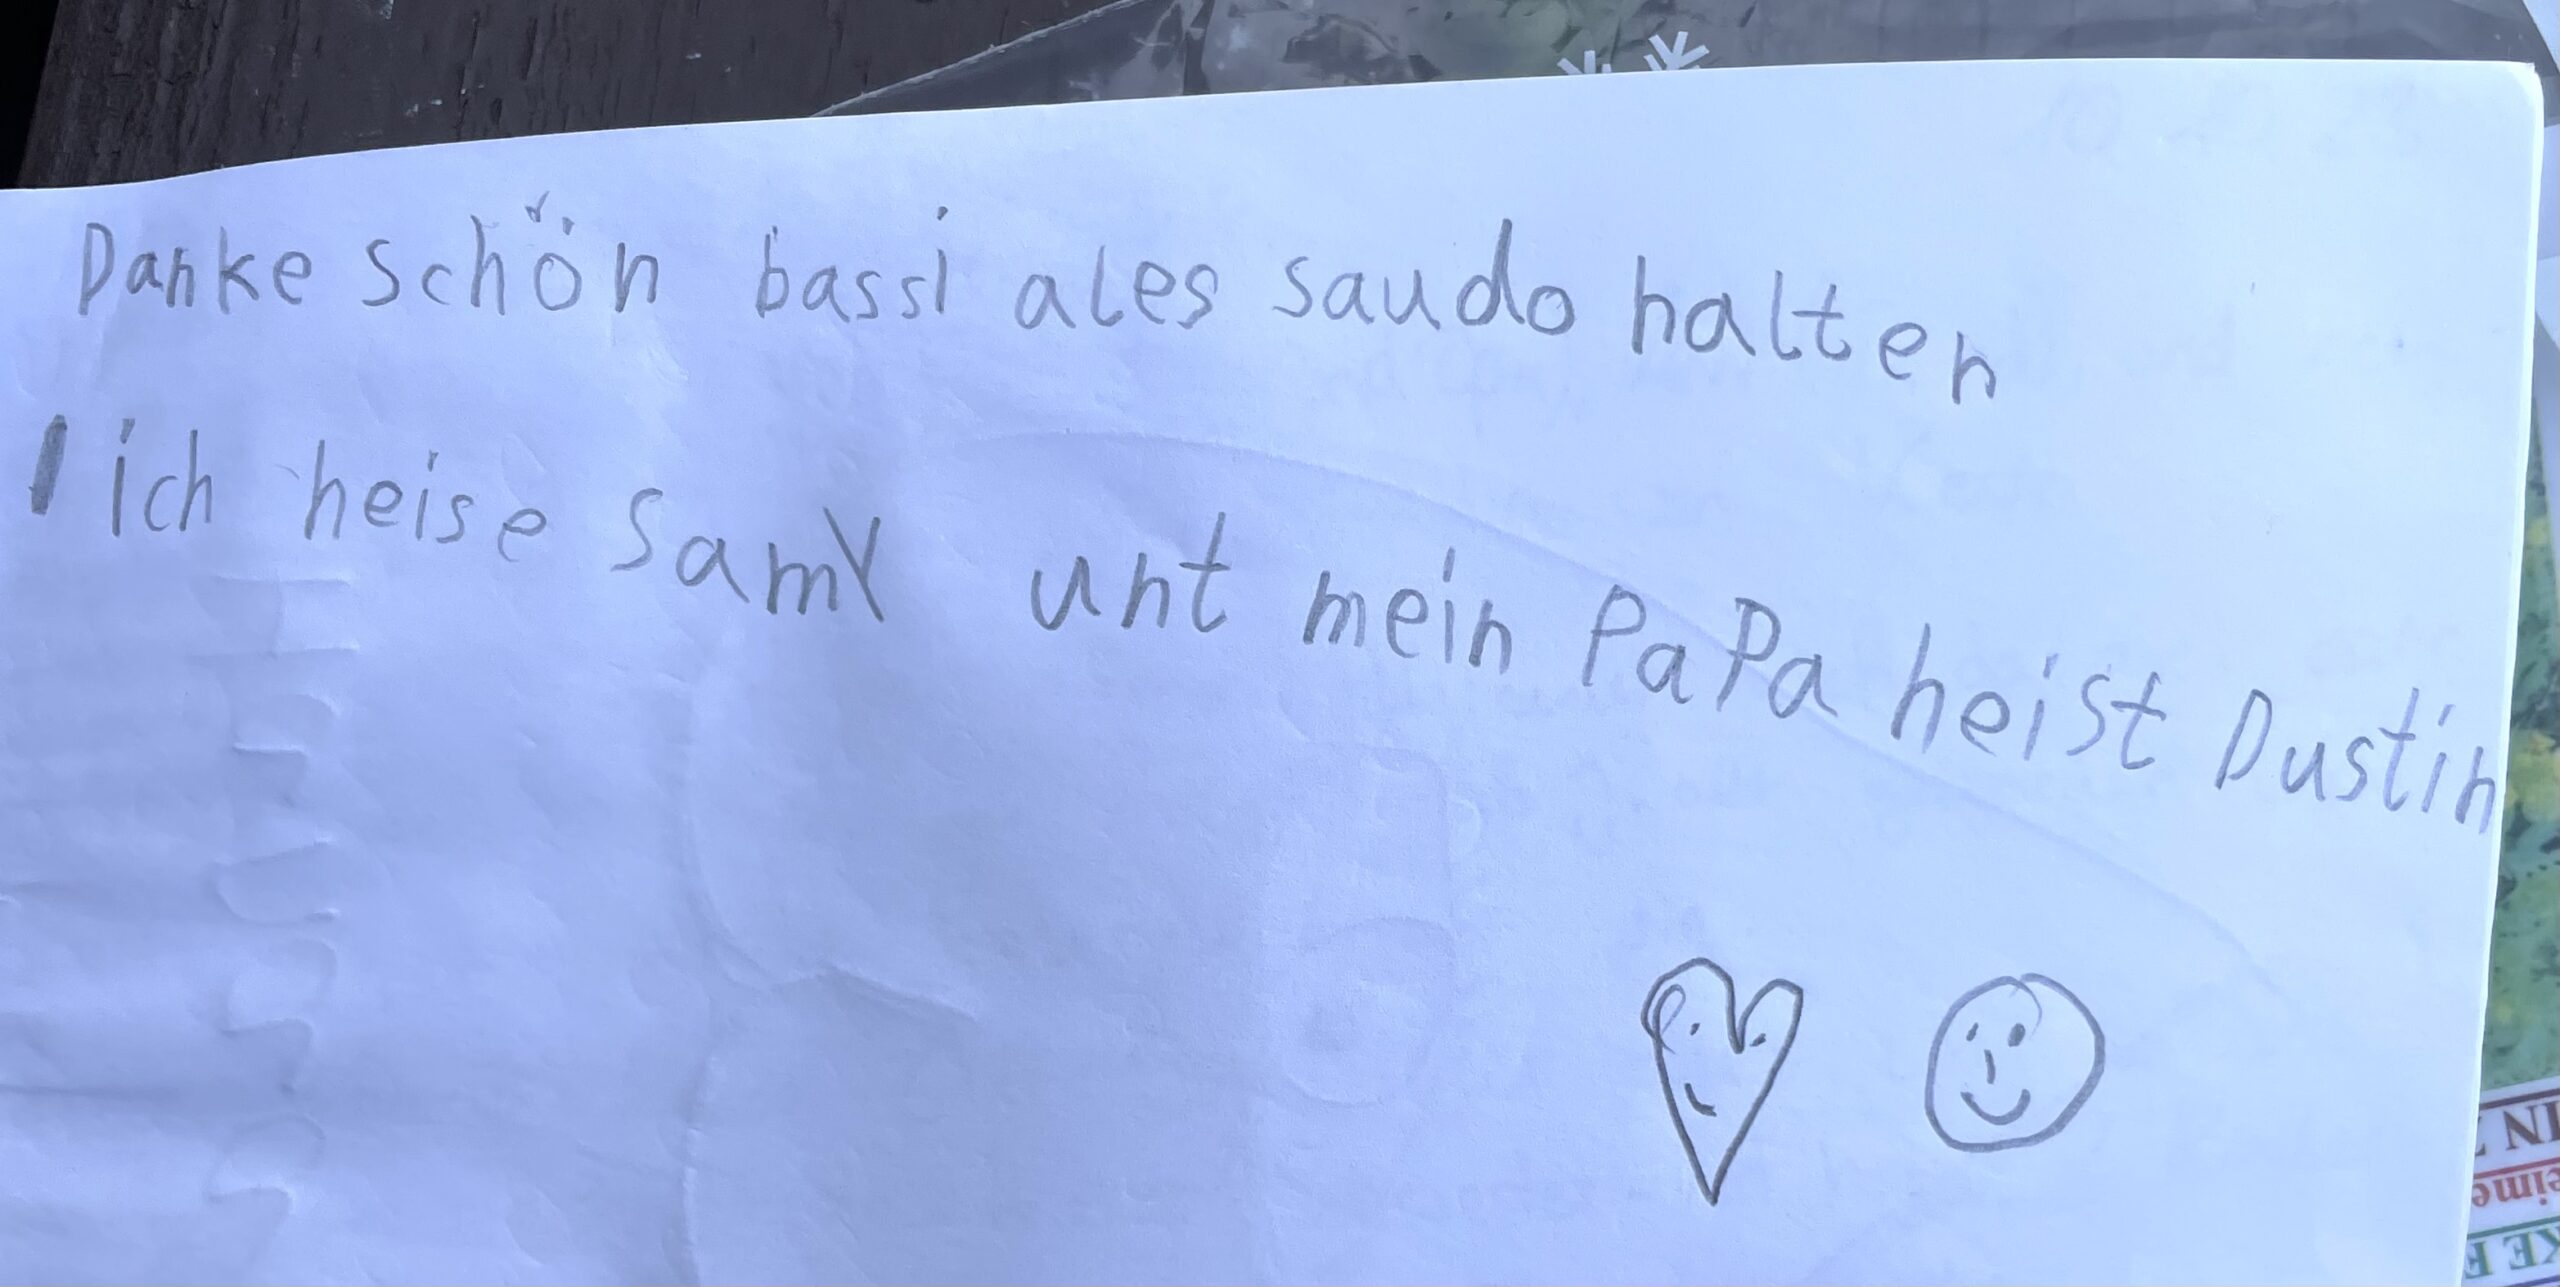 Danke schön bassi ales saudo halten
ich heise Samy unt mein PaPa heist Dustin